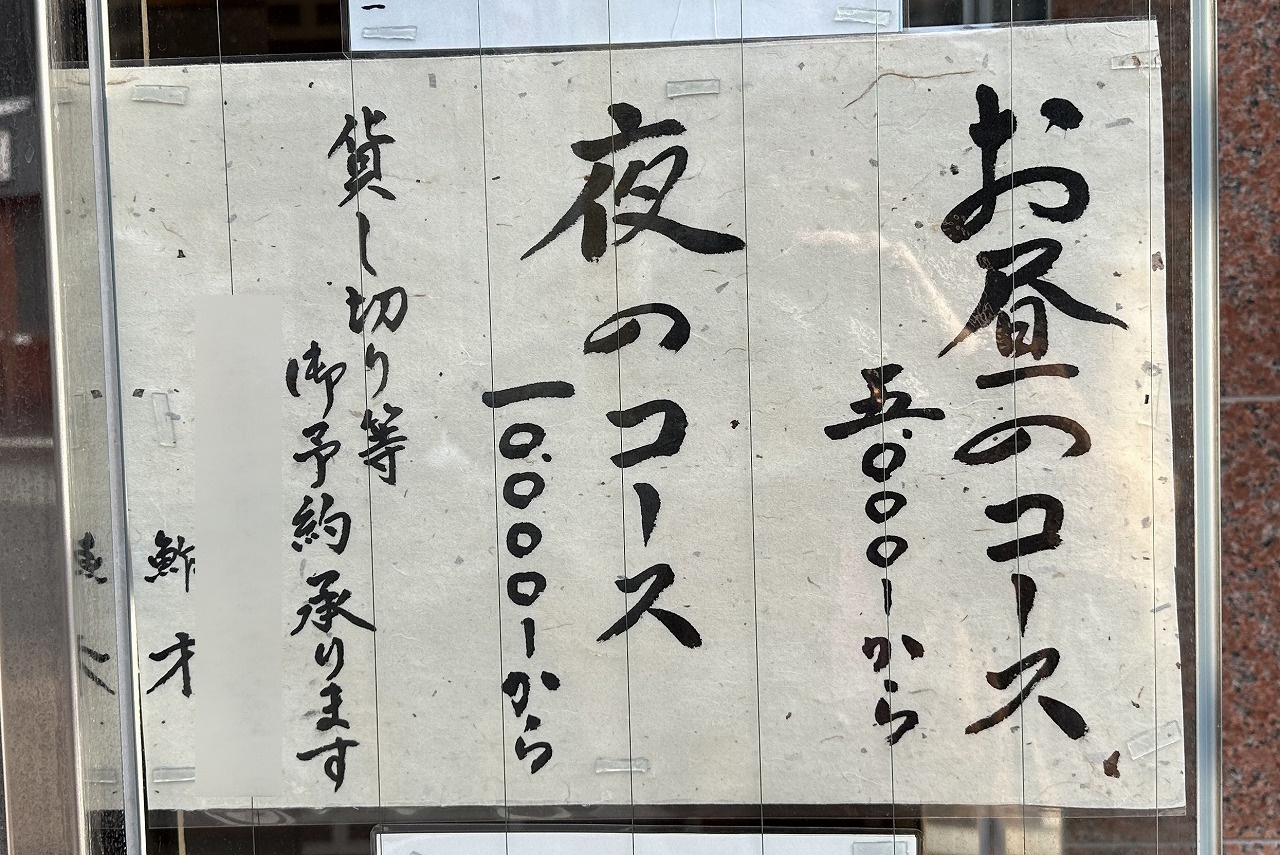 お昼のコース
五.〇〇〇ーから
夜のコース
一〇.〇〇〇ーから
貨し切り等
御予約承ります
鮓才